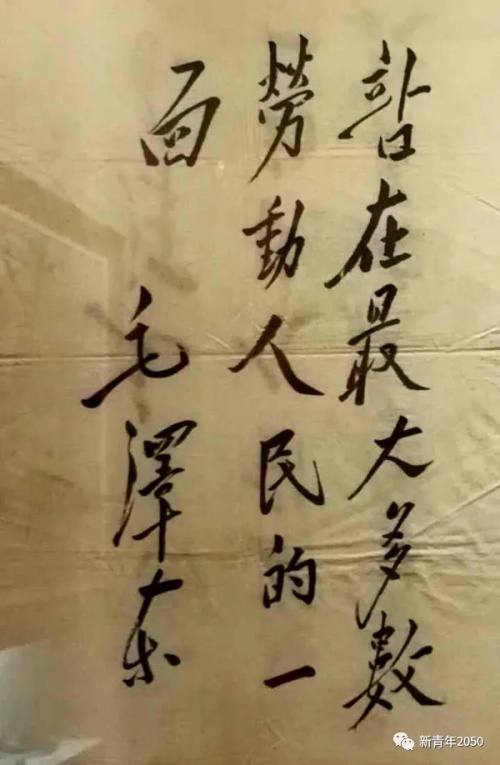 站在最大多数
勞動人民的一
面
毛澤东
新青年2050